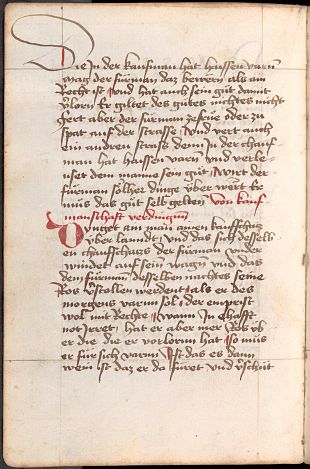 Die In der kaufman hat haissen varn
mag der fürman daz bewern als ain
Recht ist Und hat auch sein gůt damit
v̓lorn Er giltet des gůtes nichtes nicht
fert aber der fürman ze frůe oder zu
spat auf der strasse Und vert auch
ein andren strass denn In der chauf
man hat haissen varn und verle
uset dem manne sein gůt Wirt der
fürman sölher dinge über wert Er
můs das gůt selb gelten Von kauf
manschafft verdingun
Dinget am man ainen kaufschatz
über lanndt Und das sich desselb
en chaufschatz der fürman under
windet auf sein wagn und das
dem fürman desselben nachtes seine
Ros v̓stollen werdent als er des
morgens varnn sol der enprist
wol mit Rechte Wann In ehafft
not Irret hat er aber mer Ros ob
er die die er verlorn hat so můs
er für sich varnn Ist das es dann
wem ist daz er da füret und v̓schüt